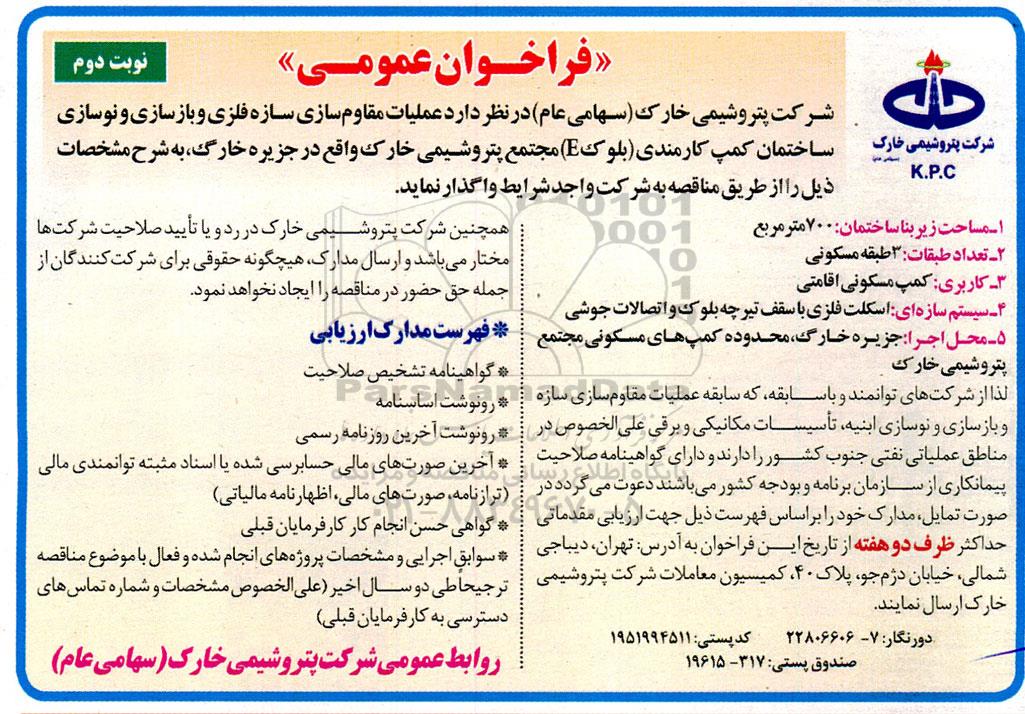 نوبت دوم
«فراخوان عمومی»
شرکت پتروشیمی خارک
(سهامی عام)
K.P.C
شرکت پتروشیمی خارک (سهامی عام) در نظر دارد عملیات مقاوم‌سازی سازه فلزی و بازسازی و نوسازی
ساختمان کمپ کارمندی (بلوک E) مجتمع پتروشیمی خارک واقع در جزیره خارگ، به شرح مشخصات
ذیل را از طریق مناقصه به شرکت واجد شرایط واگذار نماید.
۱ـ مساحت زیر بنا ساختمان: ۷۰۰ متر مربع
۲ـ تعداد طبقات: ۳ طبقه مسکونی
۳ـ کاربری: کمپ مسکونی اقامتی
۴ـ سیستم سازه‌ای: اسکلت فلزی با سقف تیرچه بلوک و اتصالات جوشی
۵ـ محل اجرا: جزیره خارگ، محدوده کمپ‌های مسکونی مجتمع
پتروشیمی خارک
لذا از شرکت‌های توانمند و باسابقه، که سابقه عملیات مقاوم‌سازی سازه
و بازسازی و نوسازی ابنیه، تأسیسات مکانیکی و برقی علی‌الخصوص در
مناطق عملیاتی نفتی جنوب کشور را دارند و دارای گواهینامه صلاحیت
پیمانکاری از سازمان برنامه و بودجه کشور می‌باشند دعوت می‌گردد در
صورت تمایل، مدارک خود را براساس فهرست ذیل جهت ارزیابی مقدماتی
حداکثر ظرف دو هفته از تاریخ این فراخوان به آدرس: تهران، دیباجی
شمالی، خیابان دژم‌جو، پلاک ۴۰، کمیسیون معاملات شرکت پتروشیمی
خارک ارسال نمایند.
دورنگار: ۷- ۲۲۸۰۶۶۰۶ کدپستی: ۱۹۵۱۹۹۴۵۱۱
صندوق پستی: ۳۱۷- ۱۹۶۱۵
همچنین شرکت پتروشیمی خارک در رد و یا تأیید صلاحیت شرکت‌ها
مختار می‌باشد و ارسال مدارک، هیچگونه حقوقی برای شرکت‌کنندگان از
جمله حق حضور در مناقصه را ایجاد نخواهد نمود.
* فهرست مدارک ارزیابی
* گواهینامه تشخیص صلاحیت
* رونوشت اساسنامه
* رونوشت آخرین روزنامه رسمی
* آخرین صورت‌های مالی حسابرسی شده یا اسناد مثبته توانمندی مالی
(ترازنامه، صورت‌های مالی، اظهارنامه مالیاتی)
* گواهی حسن انجام کار کارفرمایان قبلی
* سوابق اجرایی و مشخصات پروژه‌های انجام شده و فعال با موضوع مناقصه
ترجیحاً طی دو سال اخیر (علی‌الخصوص مشخصات و شماره تماس‌های
دسترسی به کارفرمایان قبلی)
روابط عمومی شرکت پتروشیمی خارک (سهامی عام)
ParsNamadData
پایگاه اطلاع رسانی مناقصه و مزایده
۰۲۱-۸۸۳۴۹۶۷۰-۵